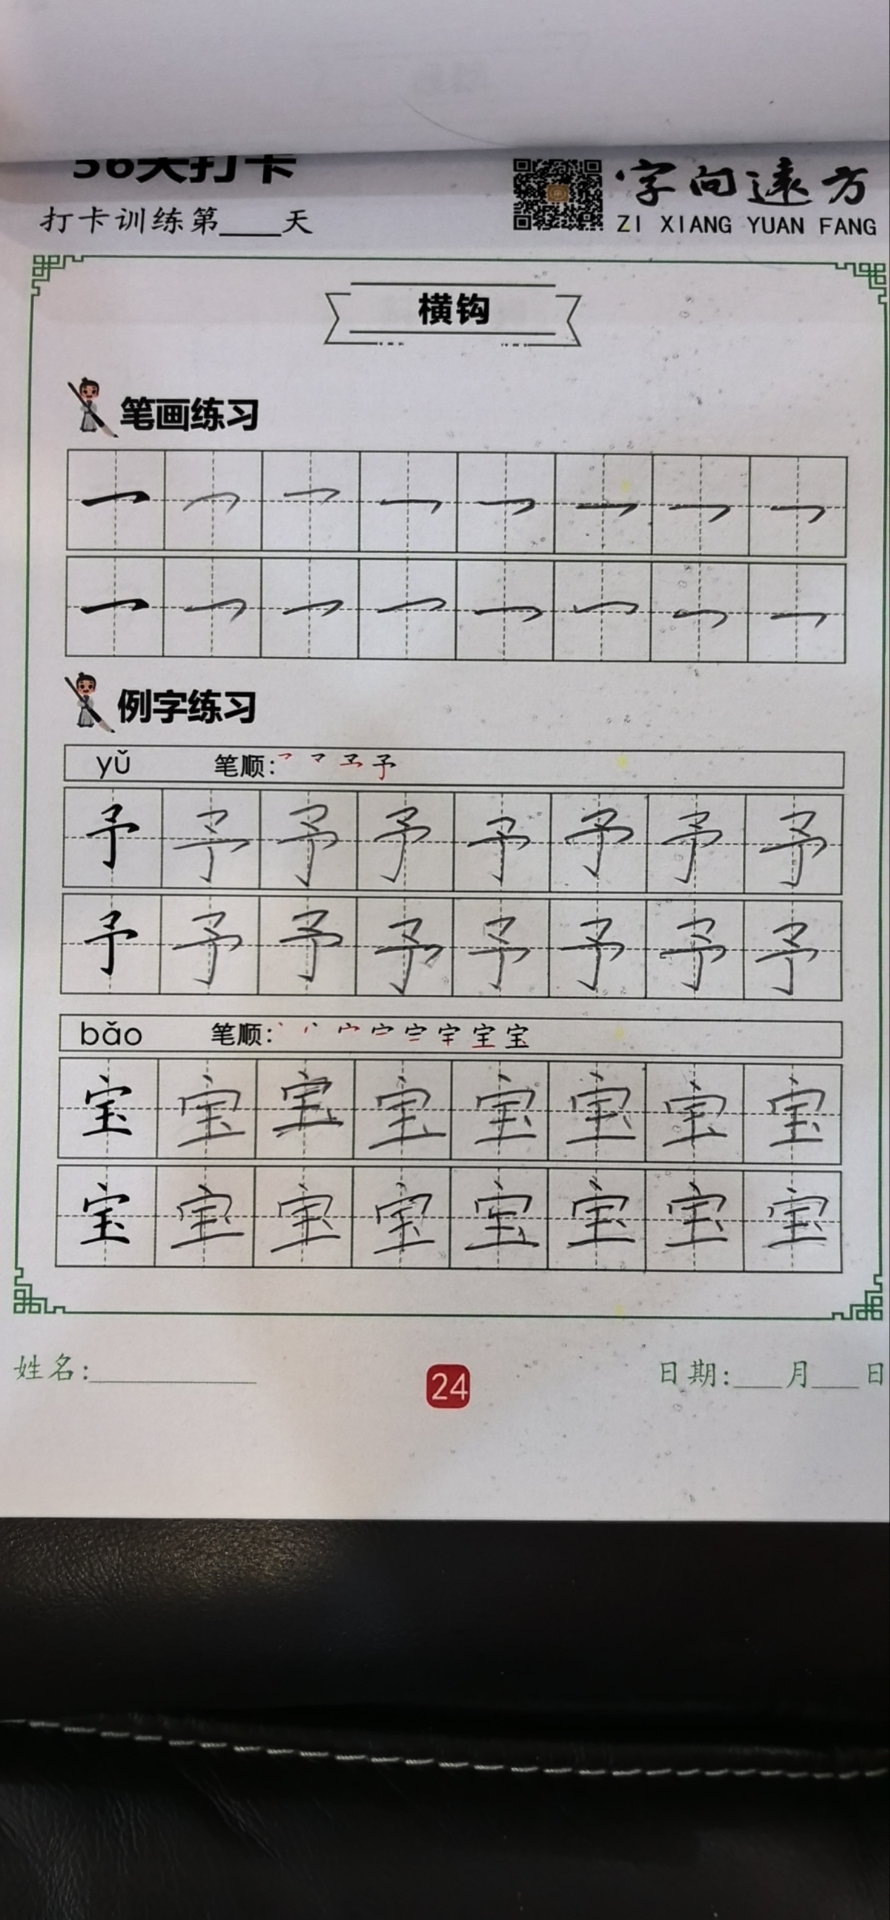 56天打卡
打卡训练第____天
字向远方
ZI XIANG YUAN FANG
横钩
笔画练习
㇖ ㇖ ㇖ ㇖ ㇖ ㇖ ㇖ ㇖
㇖ ㇖ ㇖ ㇖ ㇖ ㇖ ㇖ ㇖
例字练习
yǔ 笔顺: 予
予 予 予 予 予 予 予 予
予 予 予 予 予 予 予 予
bǎo 笔顺: 宝
宝 宝 宝 宝 宝 宝 宝 宝
宝 宝 宝 宝 宝 宝 宝 宝
姓名:__________ 24 日期:___月___日